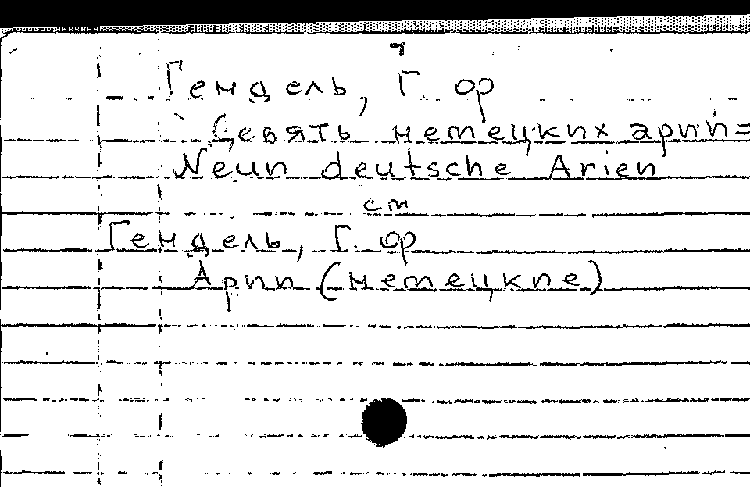 Гендель, Г. ор
Девять немецких арий =
Neun deutsche Arien
см
Гендель, Г. ор
Арии (немецкие)